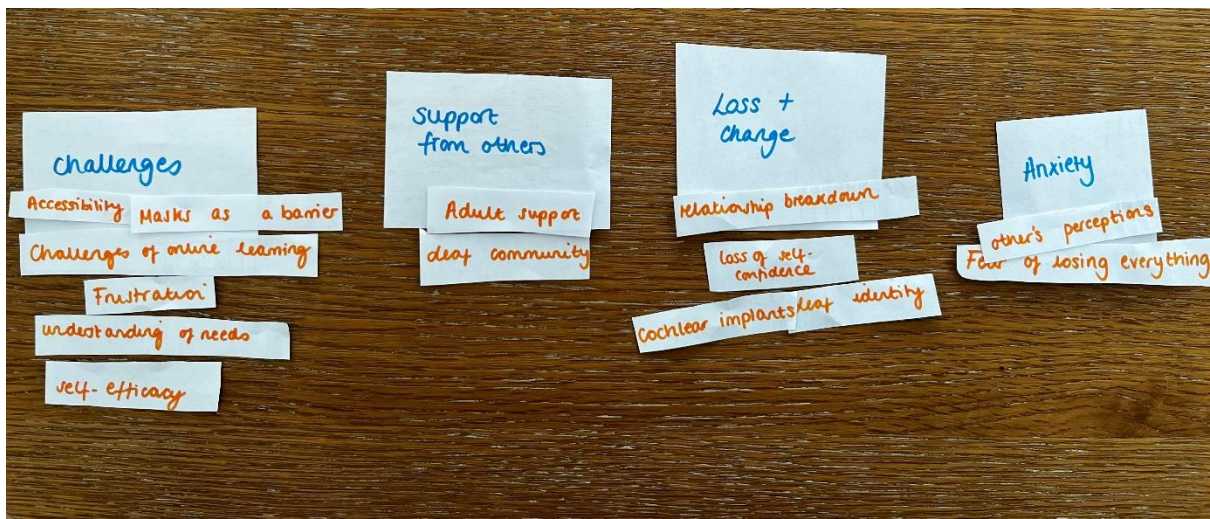 Challenges
Accessibility
Masks as a barrier
Challenges of online learning
Frustration
understanding of needs
self-efficacy
Support
from others
Adult support
deaf community
Loss +
change
relationship breakdown
loss of self-
confidence
Cochlear implants
deaf identity
Anxiety
other's perceptions
Fear of losing everything